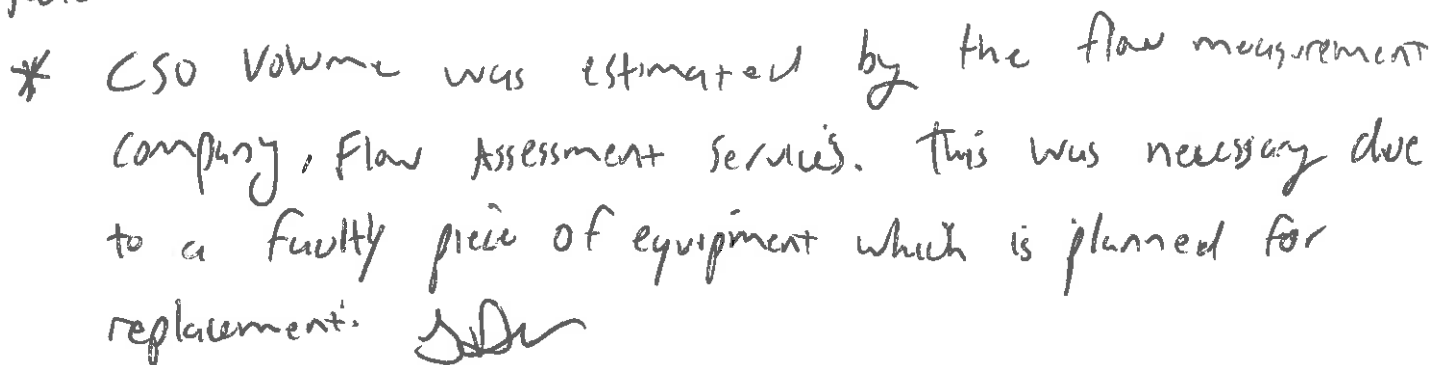 * CSO Volume was estimated by the flow measurement
company, Flow Assessment Services. This was necessary due
to a faulty piece of equipment which is planned for
replacement.